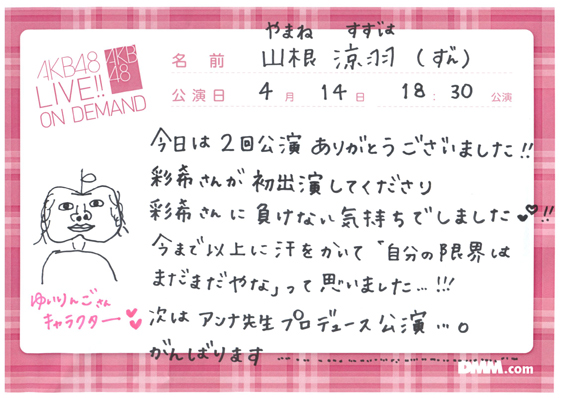 やまね すずは
AKB48 LIVE!! ON DEMAND
AKB48
名前 山根 涼羽 (ずん)
公演日 4月 14日 18:30 公演
今日は2回公演ありがとうございました!!
彩希さんが初出演してくださり
彩希さんに負けない気持ちでしました!!
今まで以上に汗をかいて「自分の限界は
まだまだやな」って思いました…!!!
次はアンナ先生プロデュース公演…。
がんばります……………
ゆいりんごさん
キャラクター
DMM.com